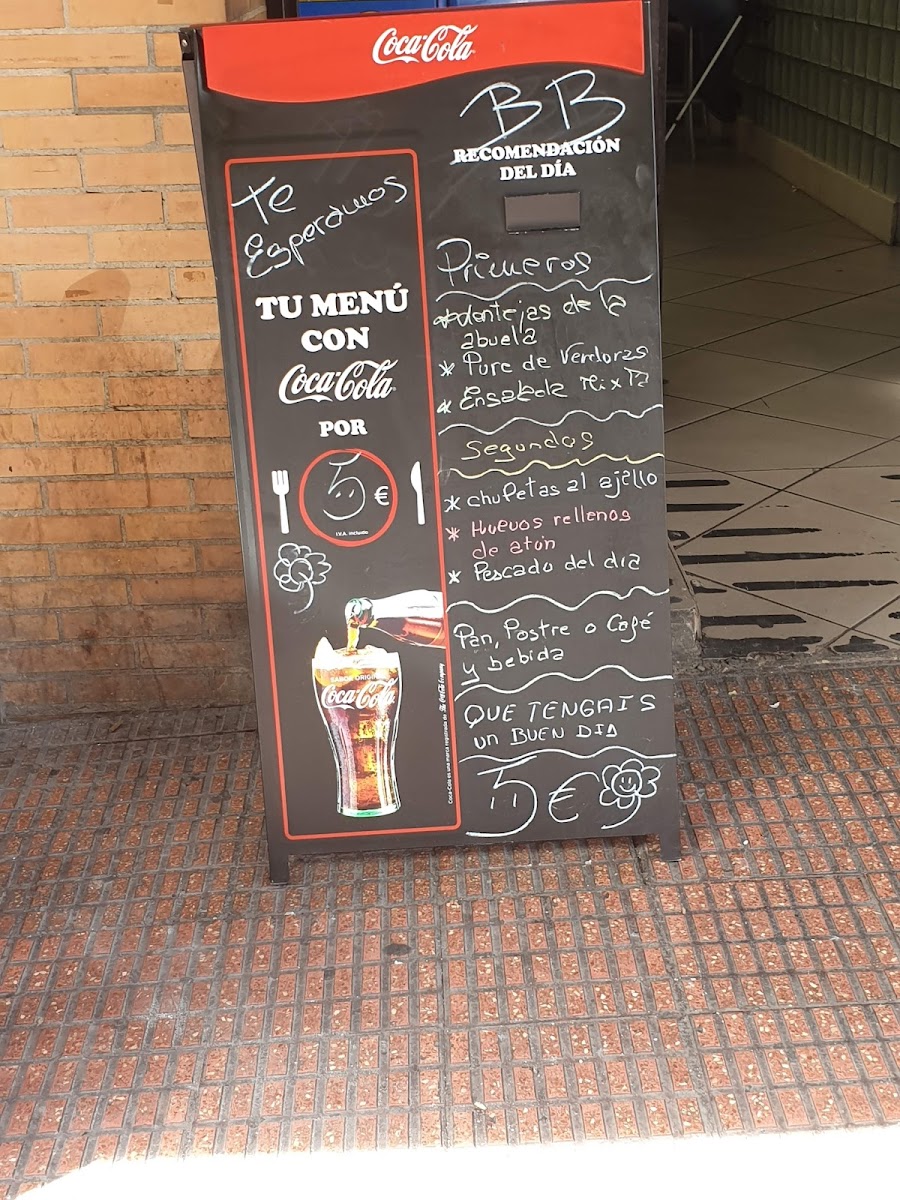 Coca-Cola
BB
RECOMENDACIÓN
DEL DÍA
Te
Esperamos
TU MENÚ
CON
Coca-Cola
POR
5 €
I.V.A. incluido
SABOR ORIGINAL
Coca-Cola
Coca-Cola es una marca registrada de The Coca-Cola Company
Primeros
* Lentejas de la
abuela
* Pure de Verduras
* Ensalada MixTa
Segundos
* chuletas al ajillo
* Huevos rellenos
de atún
* Pescado del dia
Pan, Postre o Café
y bebida
QUE TENGAIS
un BUEN DIA
5 €